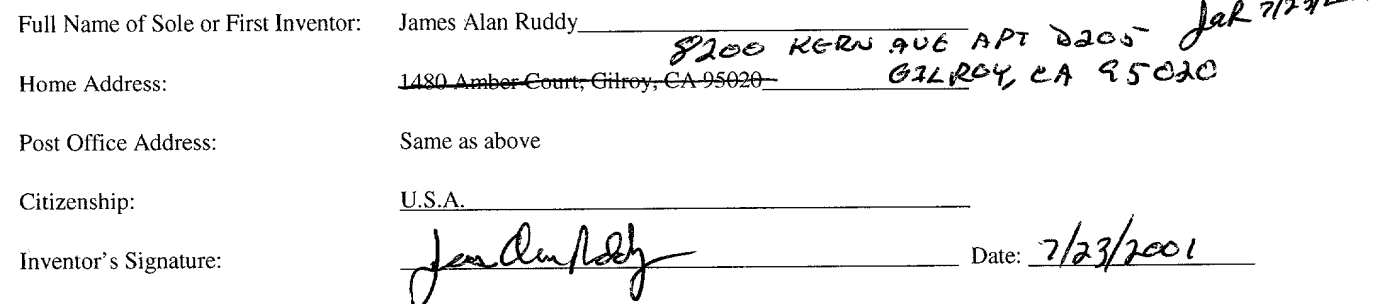 Full Name of Sole or First Inventor: James Alan Ruddy
JaR 7/23/
8200 KERN AVE APT D205
GILROY, CA 95020
Home Address: 1480 Amber Court, Gilroy, CA 95020
Post Office Address: Same as above
Citizenship: U.S.A.
Inventor's Signature: James Alan Ruddy Date: 7/23/2001